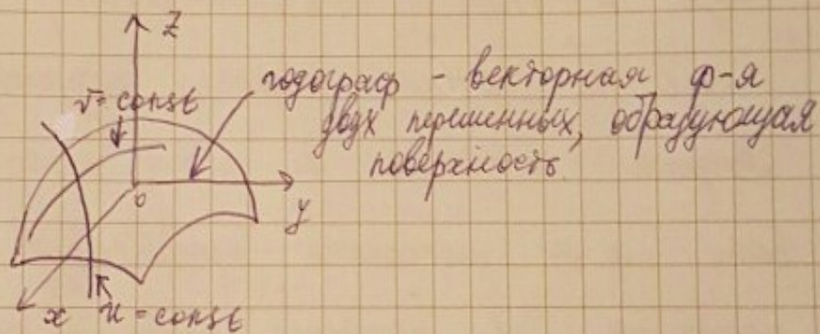 z
годограф - векторная ф-я
v = const
двух переменных, образующая
поверхность
0
y
x u = const